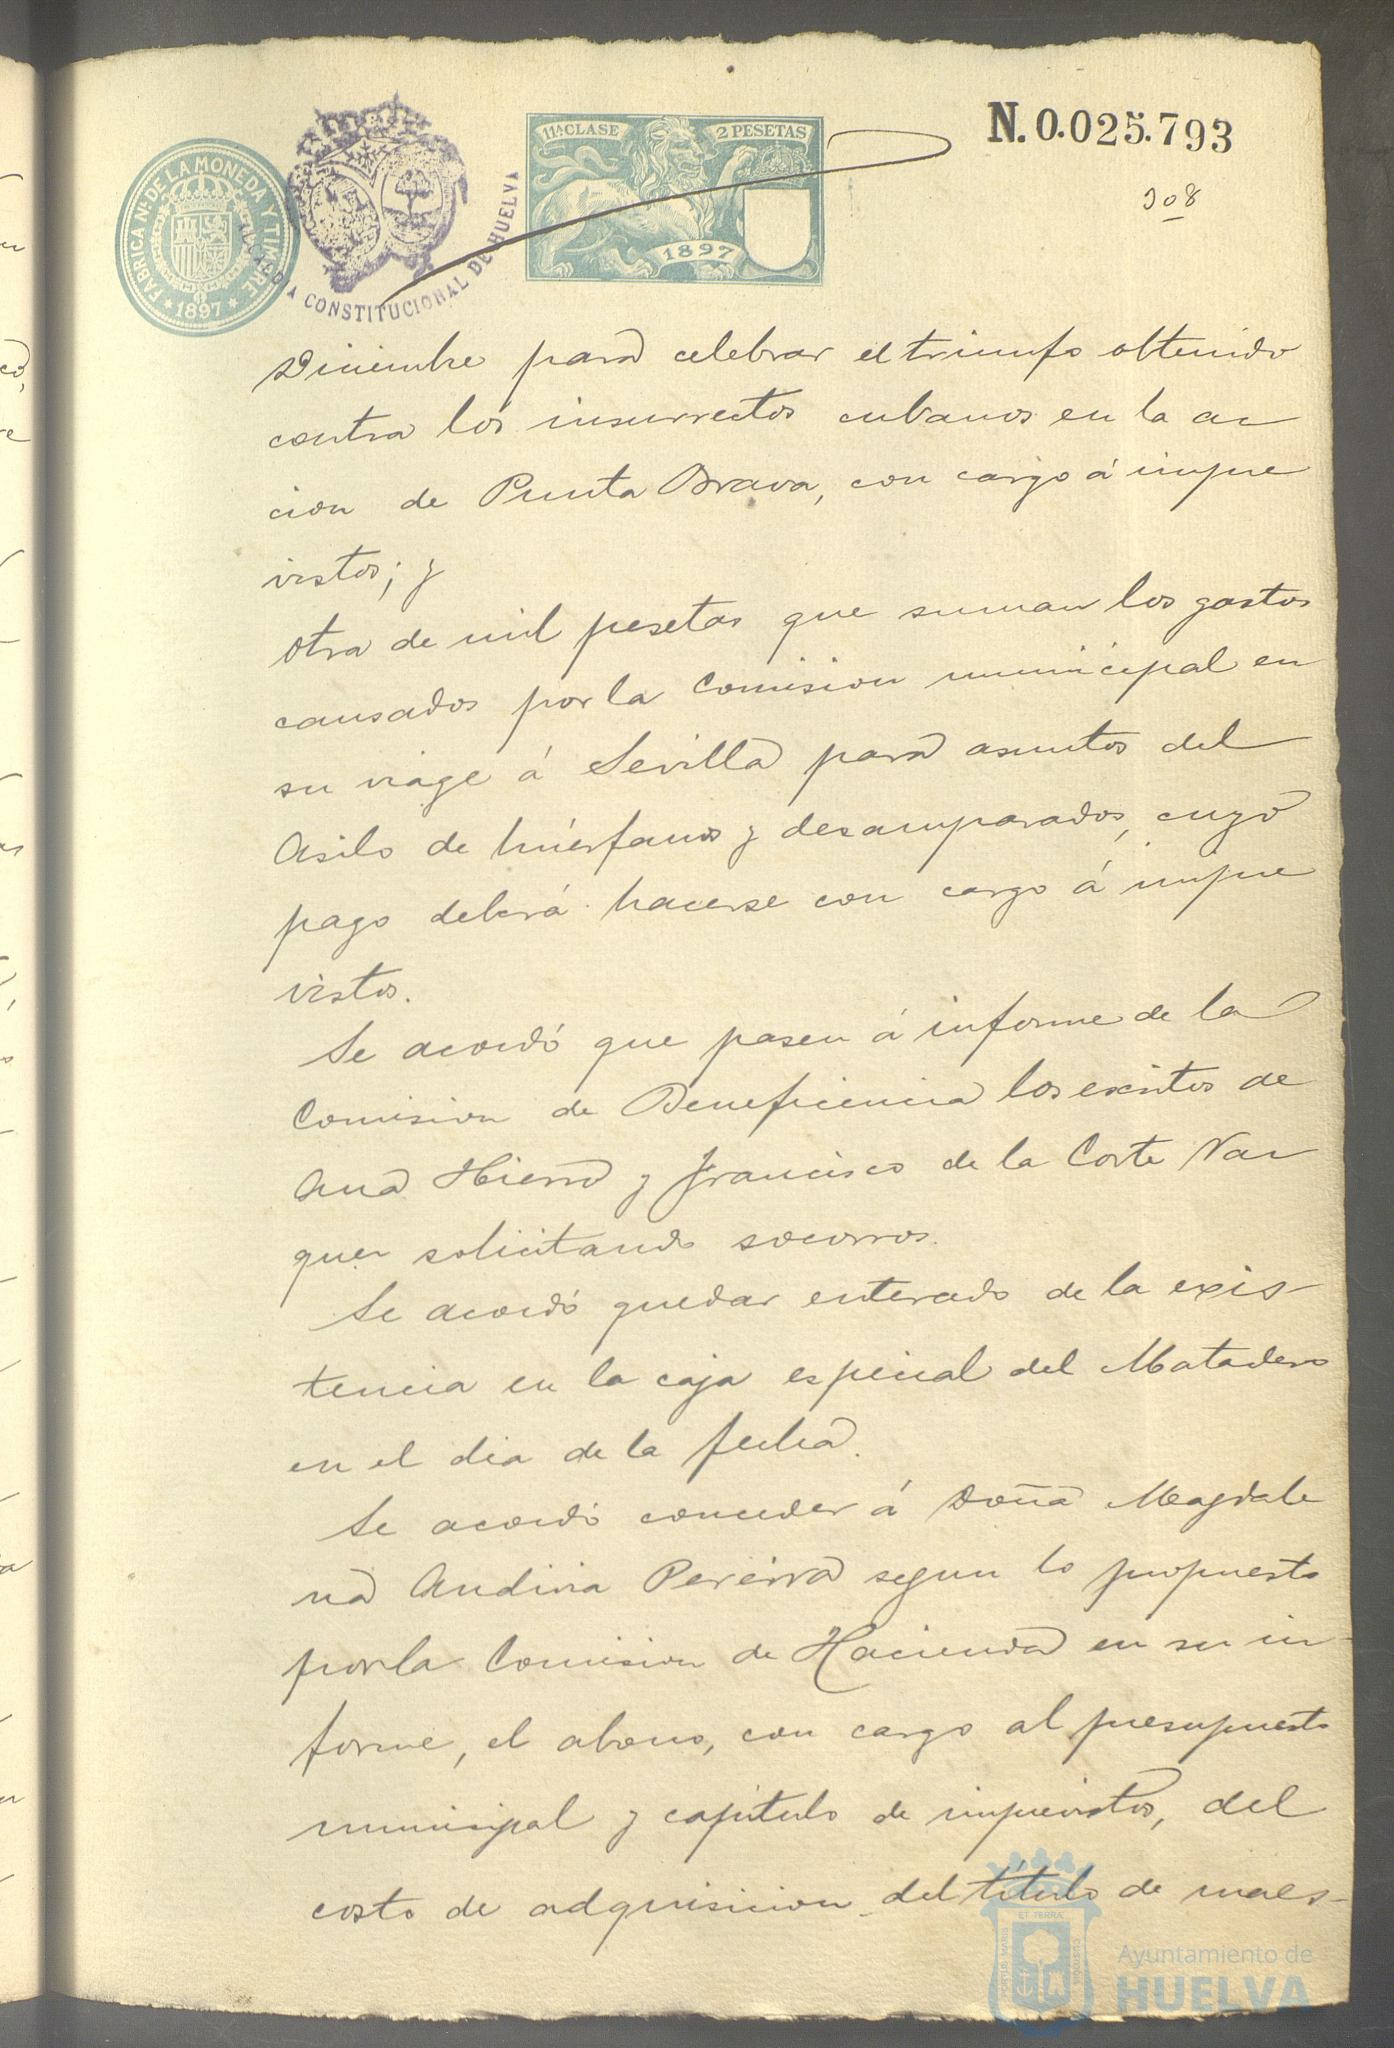 N. 0.025.793
308
11ª CLASE 2 PESETAS
1897
FABRICA Nª. DE LA MONEDA Y TIMBRE
1897
ALCALDIA CONSTITUCIONAL DE HUELVA
Diciembre para celebrar el triunfo obtenido
contra los insurrectos cubanos en la ac
cion de Punta Brava, con cargo á impre
vistos; y
otra de mil pesetas que suman los gastos
causados por la Comision municipal en
su viage á Sevilla para asuntos del
Asilo de huérfanos y desamparados, cuyo
pago deberá hacerse con cargo á impre
vistos.
Se acordó que pasen á informe de la
Comision de Beneficencia los escritos de
Ana Hierro y Francisco de la Corte Vaz
quez solicitando socorros.
Se acordó quedar enterado de la exis-
tencia en la caja especial del Matadero
en el dia de la fecha.
Se acordó conceder á Doña Magdale
na Pereira segun lo propuesto
por la Comision de Hacienda en su in-
forme, el abono, con cargo al presupuesto
municipal y capitulo de imprevistos, del
costo de adquisicion del título de maes-
PORTUS MARIS ET TERRÆ CUSTODIA
Ayuntamiento de
HUELVA